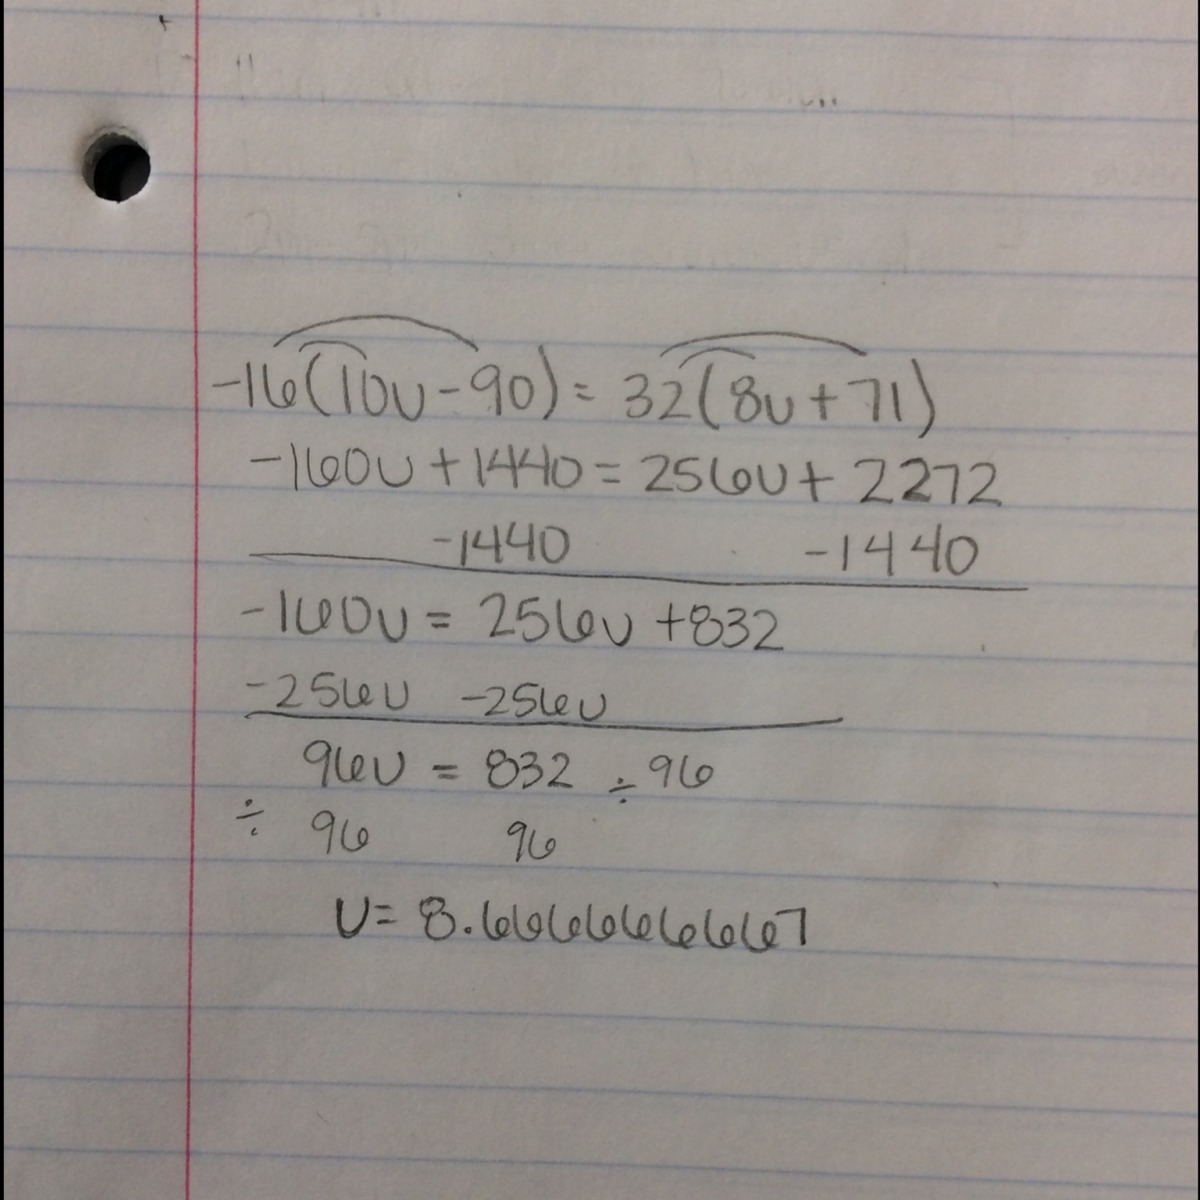 -16(10u-90)=32(8u+71)
-160u+1440=256u+2272
-1440 -1440
-160u=256u+832
-256u -256u
96u=832÷96
÷ 96 96
u=8.666666667